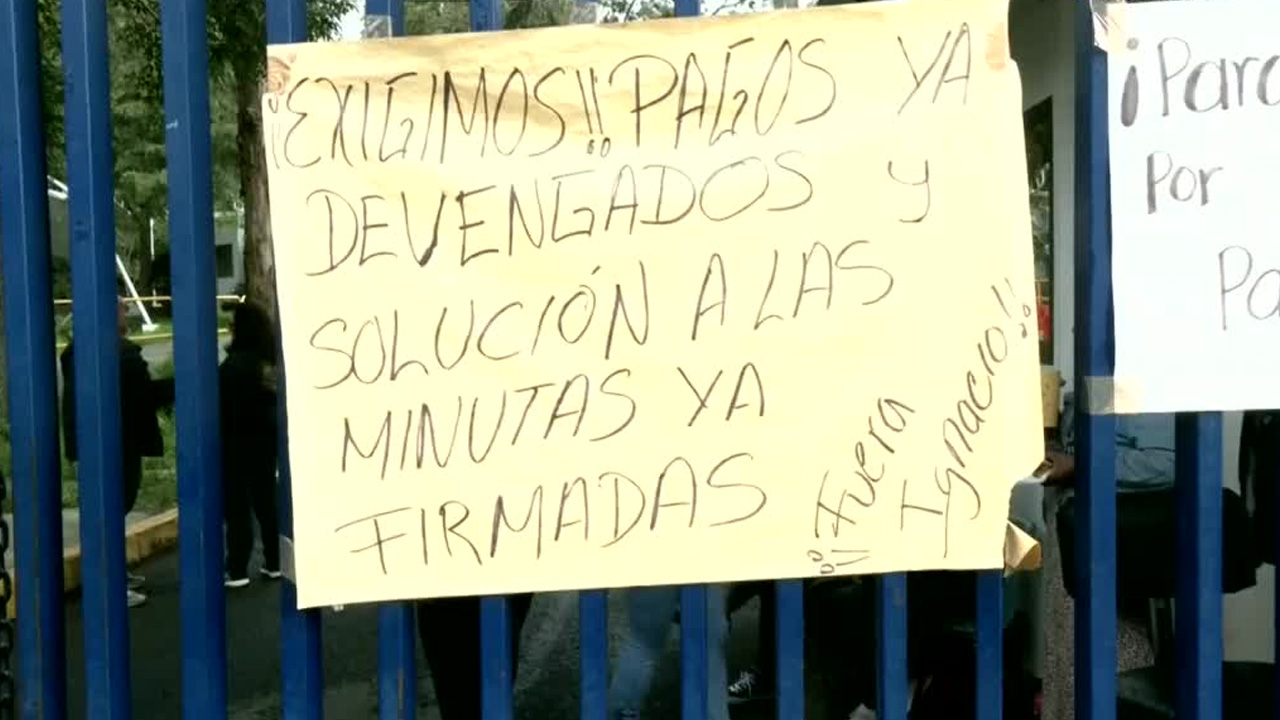 ¡EXIGIMOS!! PAGOS YA
DEVENGADOS y
SOLUCIÓN A LAS
MINUTAS YA
FIRMADAS
¡¡Fuera
Ignacio!!
Por